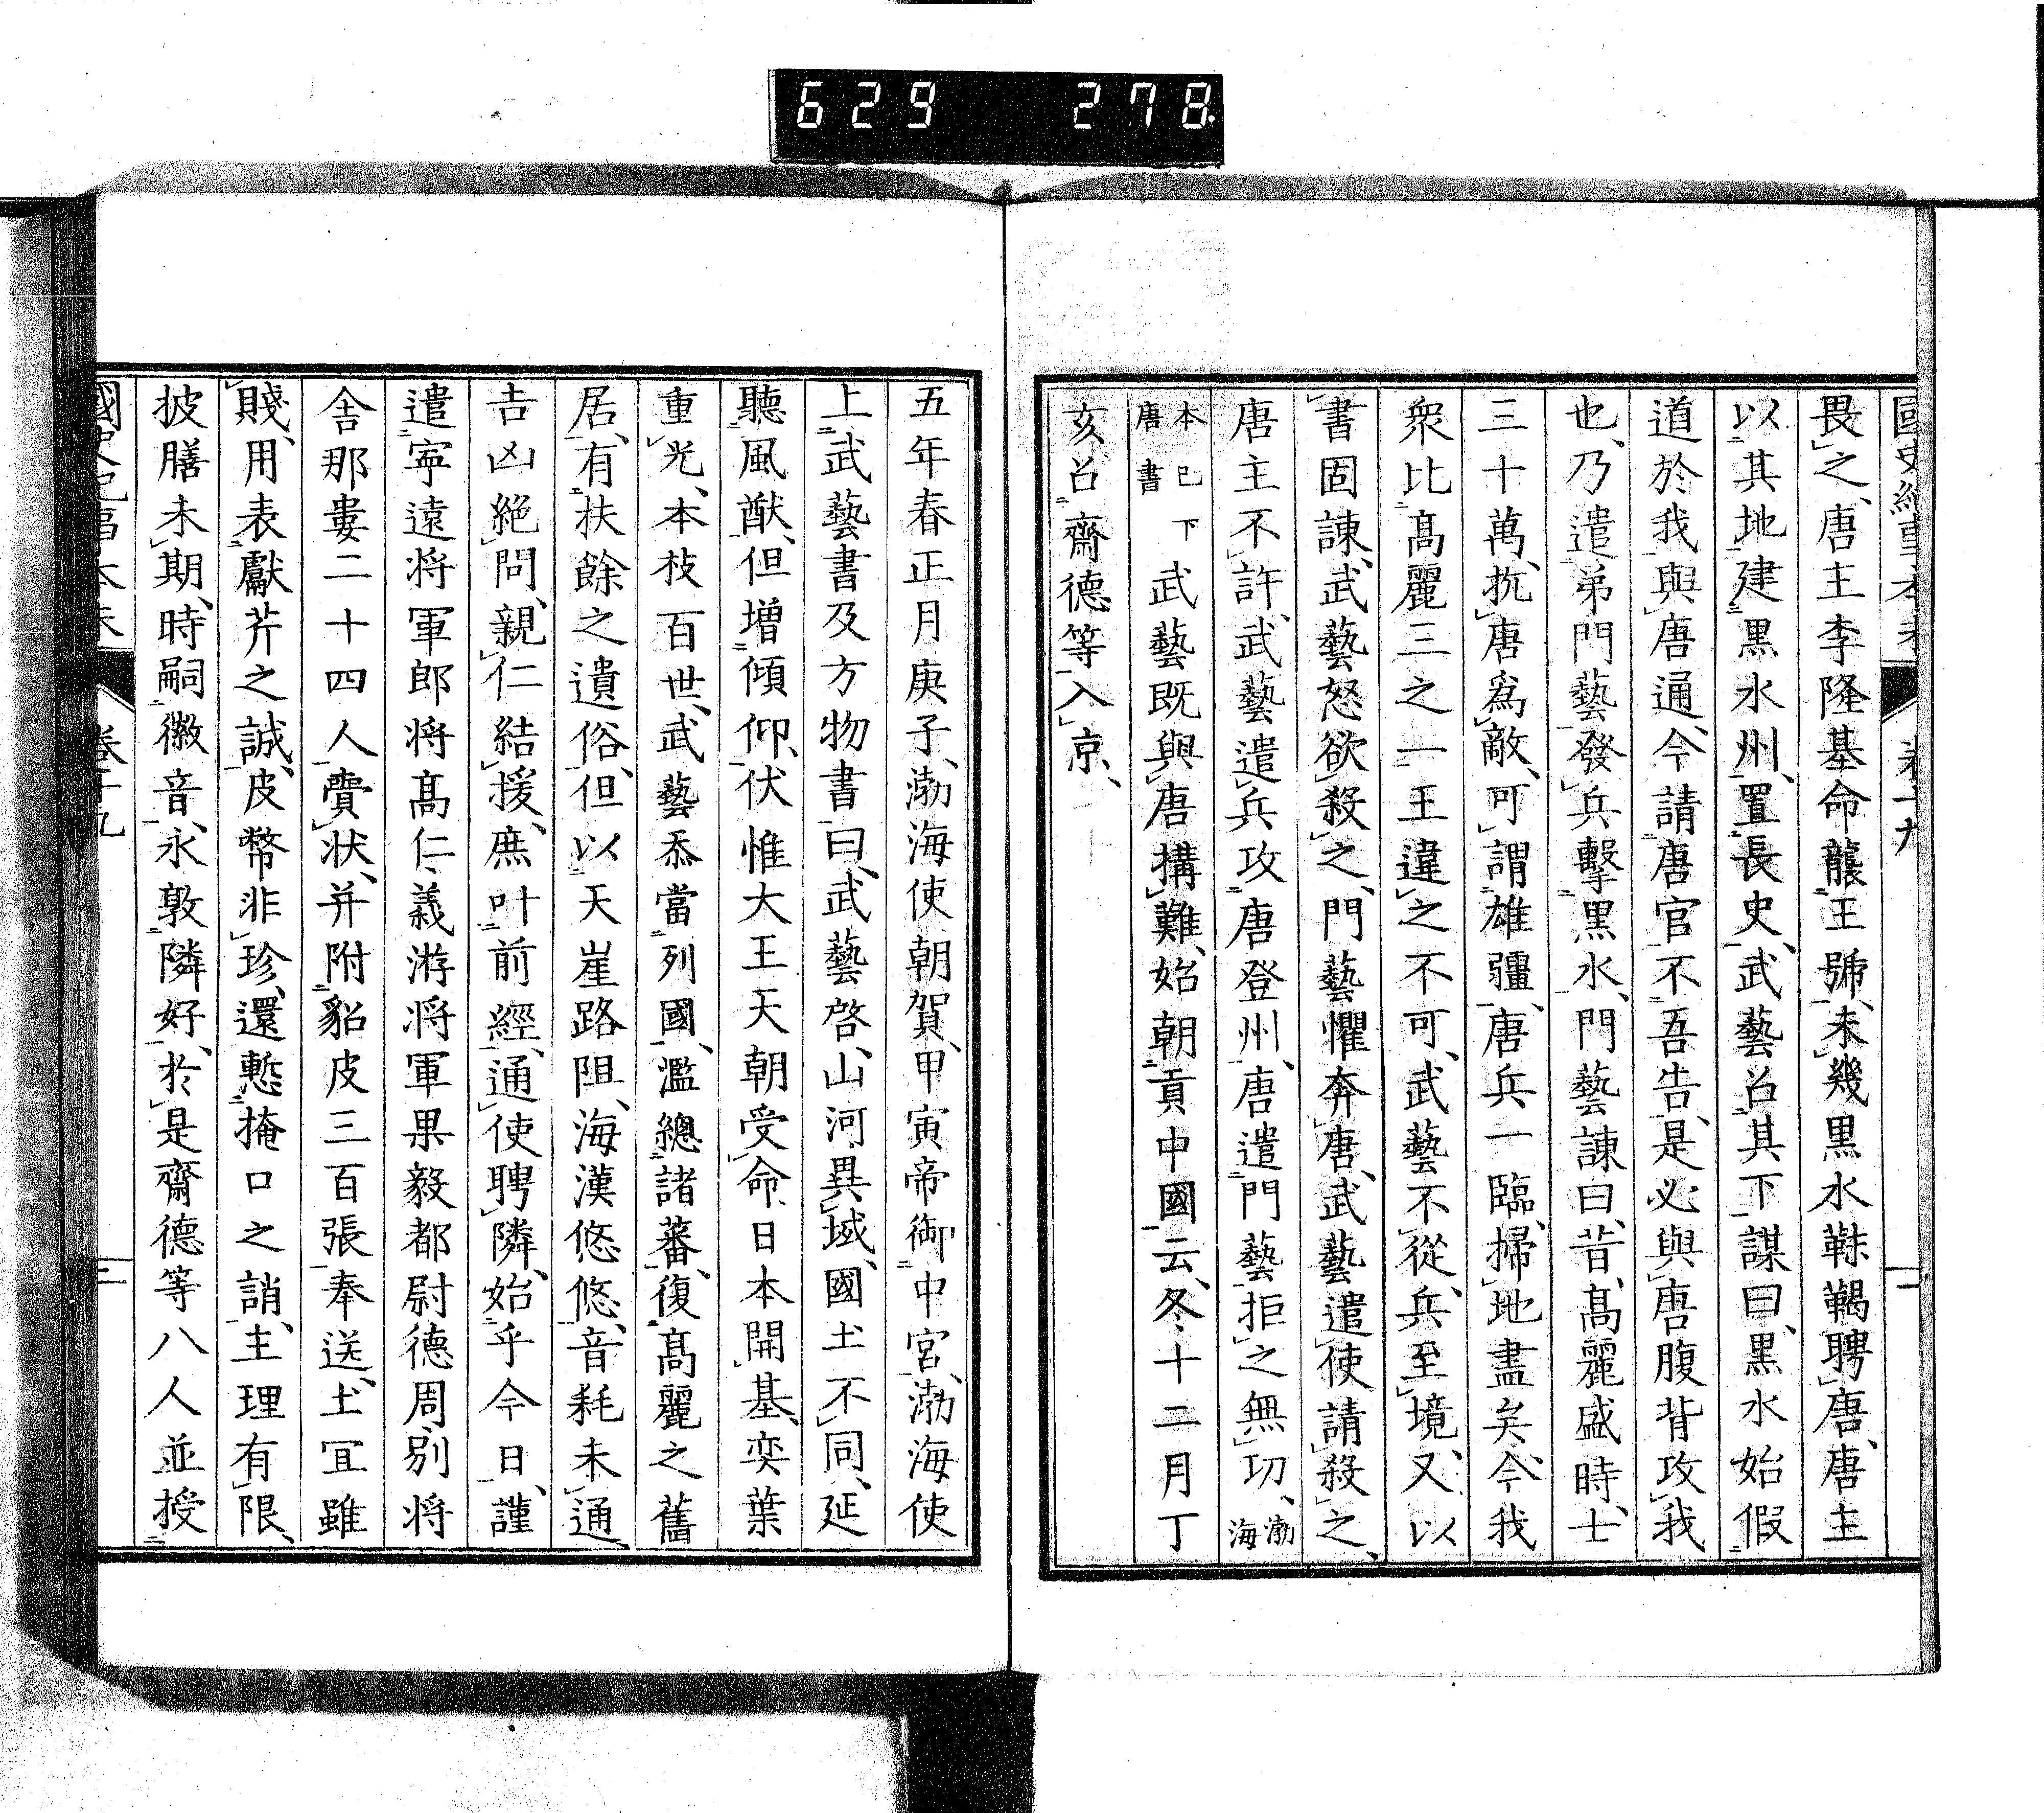 629 278
畏之、唐王李隆基命襲王號、未幾黒水靺鞨聘唐、唐主
以其地建黒水州、置長史、武藝召其下謀曰、黒水始假
道於我與唐通、今請唐官不吾告、是必與唐腹背攻我
也、乃遣弟門藝發兵擊黒水、門藝諫曰、昔高麗盛時、士
三十萬、抗唐爲敵、可謂雄疆、唐兵一臨、掃地盡矣、今我
衆比高麗三之一、王違之不可、武藝不從、兵至境、又以
書固諫、武藝怒欲殺之、門藝懼奔唐、武藝遣使請殺之、
唐主不許、武藝遣兵攻唐登州、唐遣門藝拒之無功、渤海
本巳下唐書武藝既與唐搆難、始朝貢中國云、冬十二月丁
亥召齋德等入京、
五年春正月庚子、渤海使朝賀、甲寅帝御中宮、渤海使
上武藝書及方物書曰、武藝啓、山河異域、國土不同、延
聽風猷、但增傾仰、伏惟大王天朝受命、日本開基、奕葉
重光、本枝百世、武藝忝當列國、濫總諸蕃、復高麗之舊
居、有扶餘之遺俗、但以天崖路阻、海漢悠悠、音耗未通、
吉凶絶問、親仁結援、庶叶前經、通使聘隣、始乎今日、謹
遣寧遠将軍郎将高仁義游将軍果毅都尉德周、別将
舍那婁二十四人賷状、并附貂皮三百張奉送、土宜雖
賤、用表獻芹之誠、皮幣非珍、還慙掩口之誚、主理有限、
披膳未期、時嗣徽音、永敦隣好、於是齋德等八人並授